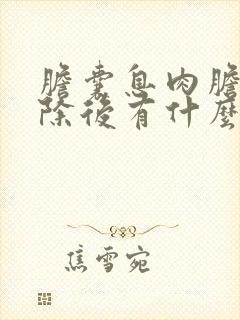 膽囊息肉膽
除後有什麼
焦雪宛